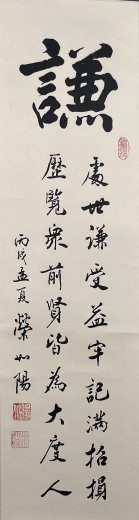 謙
處世谦受益牢記满招損
歷覽衆前賢皆為大度人
丙戌孟夏 榮如陽